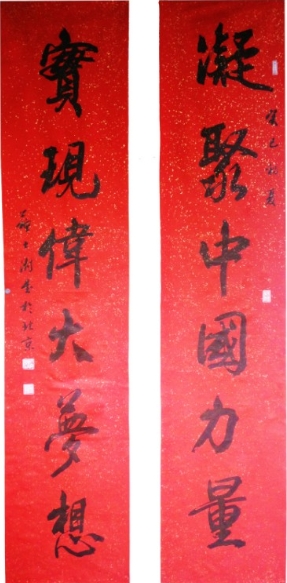 凝聚中國力量
癸巳
實現偉大夢想
於北京